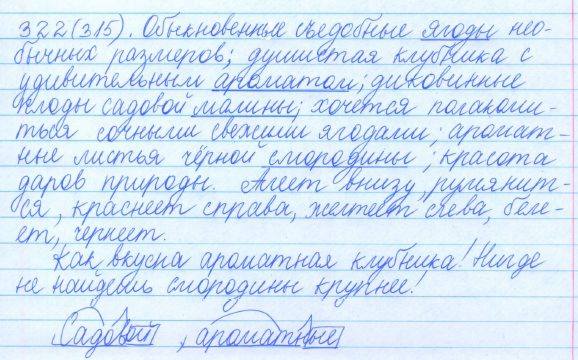 322(315). Обыкновенные съедобные ягоды нео-
бычных размеров; душистая клубника с
удивительным ароматом; диковинные
плоды садовой малины; хочется полакоми-
ться сочными свежими ягодами; аромат-
ные листья чёрной смородины; красота
даров природы. Алеет внизу, румянит-
ся, краснеет справа, желтеет слева, беле-
ет, чернеет.
Как вкусна ароматная клубника! Нигде
не найдёшь смородины крупнее!
Садовой, ароматные